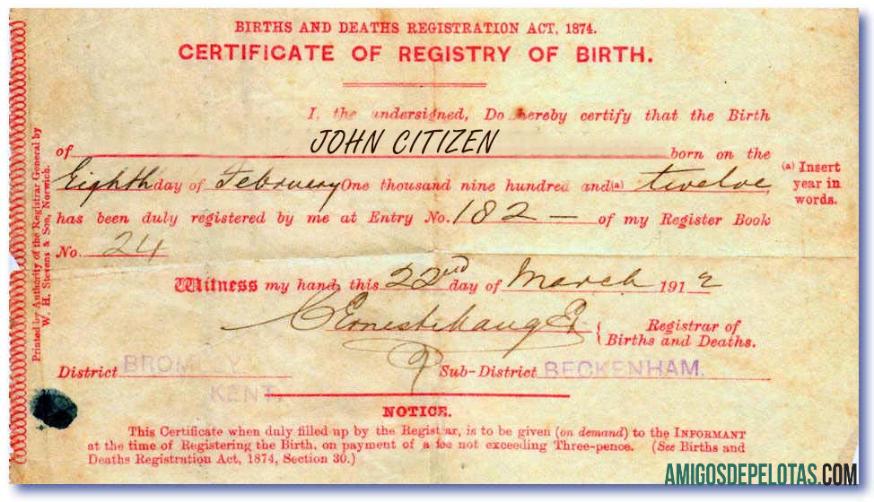 BIRTHS AND DEATHS REGISTRATION ACT, 1874.
CERTIFICATE OF REGISTRY OF BIRTH.
I, the undersigned, Do hereby certify that the Birth
of JOHN CITIZEN born on the
Eighth day of February One thousand nine hundred and (a) twelve
(a) Insert
year in
words.
has been duly registered by me at Entry No. 182 — of my Register Book
No. 24
Witness my hand, this 22nd day of March 1912
Registrar of
Births and Deaths.
District BROMLEY
KENT.
Sub-District BECKENHAM.
NOTICE.
This Certificate when duly filled up by the Registrar, is to be given (on demand) to the INFORMANT
at the time of Registering the Birth, on payment of a fee not exceeding Three-pence. (See Births and
Deaths Registration Act, 1874, Section 30.)
Printed by Authority of the Registrar General by
W. H. Stevens & Son, Norwich.
AMIGOSDEPELOTAS.COM